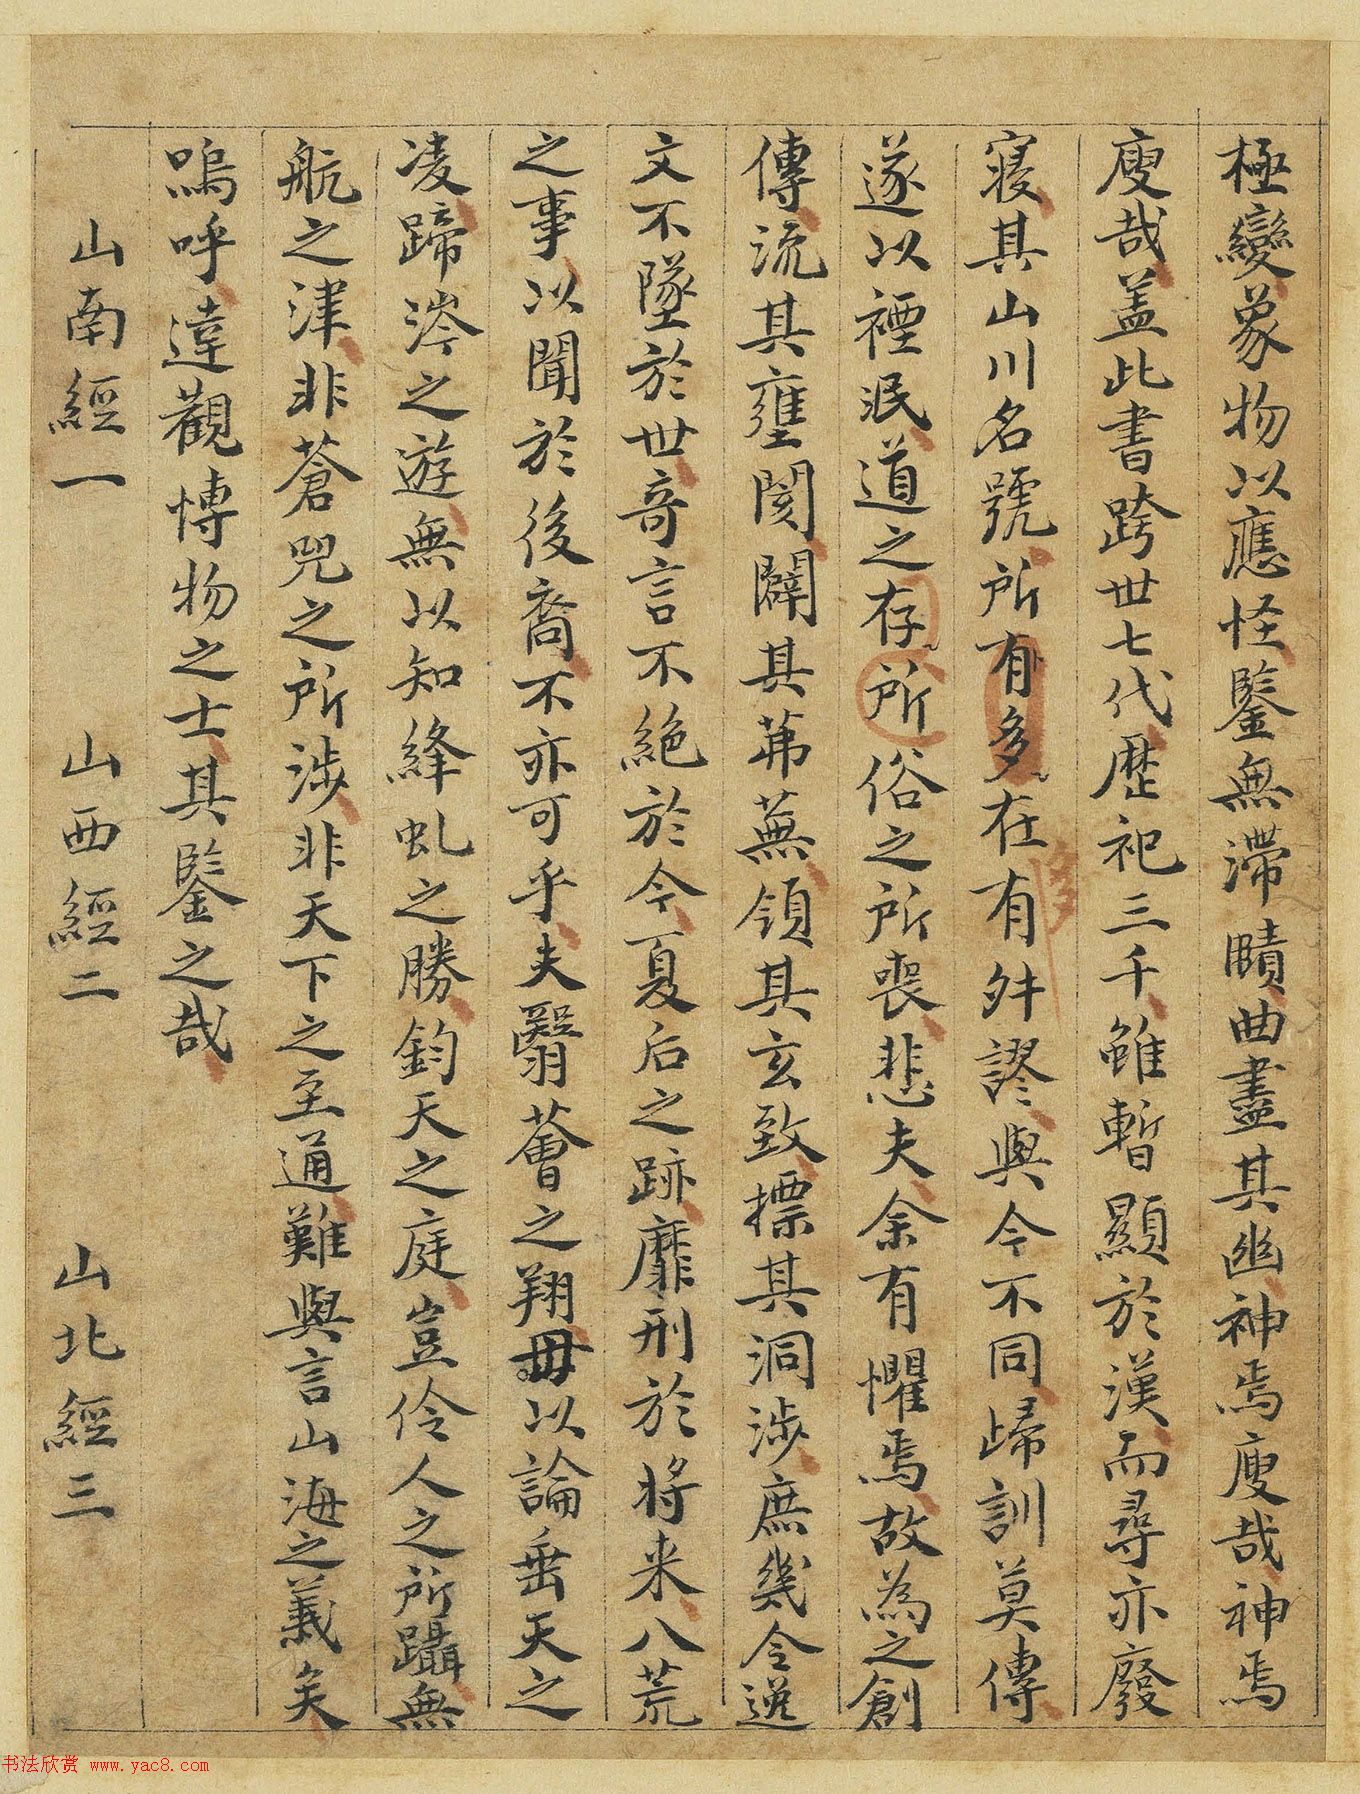 極變象物以應怪鑒無滯賾曲盡其幽神焉廋哉神焉
廋哉盖此書跨世七代歷祀三千雖暫顯於漢而尋亦廢
寢其山川名號所有多在有舛謬與今不同歸訓莫傳
遂以禋泯道之存所俗之所喪悲夫余有懼焉故為之創
傳流其壅閡闢其茀蕪領其玄致摽其洞涉庶幾令逸
文不墜於世奇言不絕於今夏后之跡靡刑於將来八荒
之事以聞於後裔不亦可乎夫翳薈之翔毋以論垂天之
凌蹄涔之遊無以知絳虬之勝鈞天之庭豈伶人之所躡無
航之津非蒼兕之所涉非天下之至通難與言山海之義矣
嗚呼達觀博物之士其鑒之哉
山南經一 山西經二 山北經三
多
书法欣赏 www.yac8.com